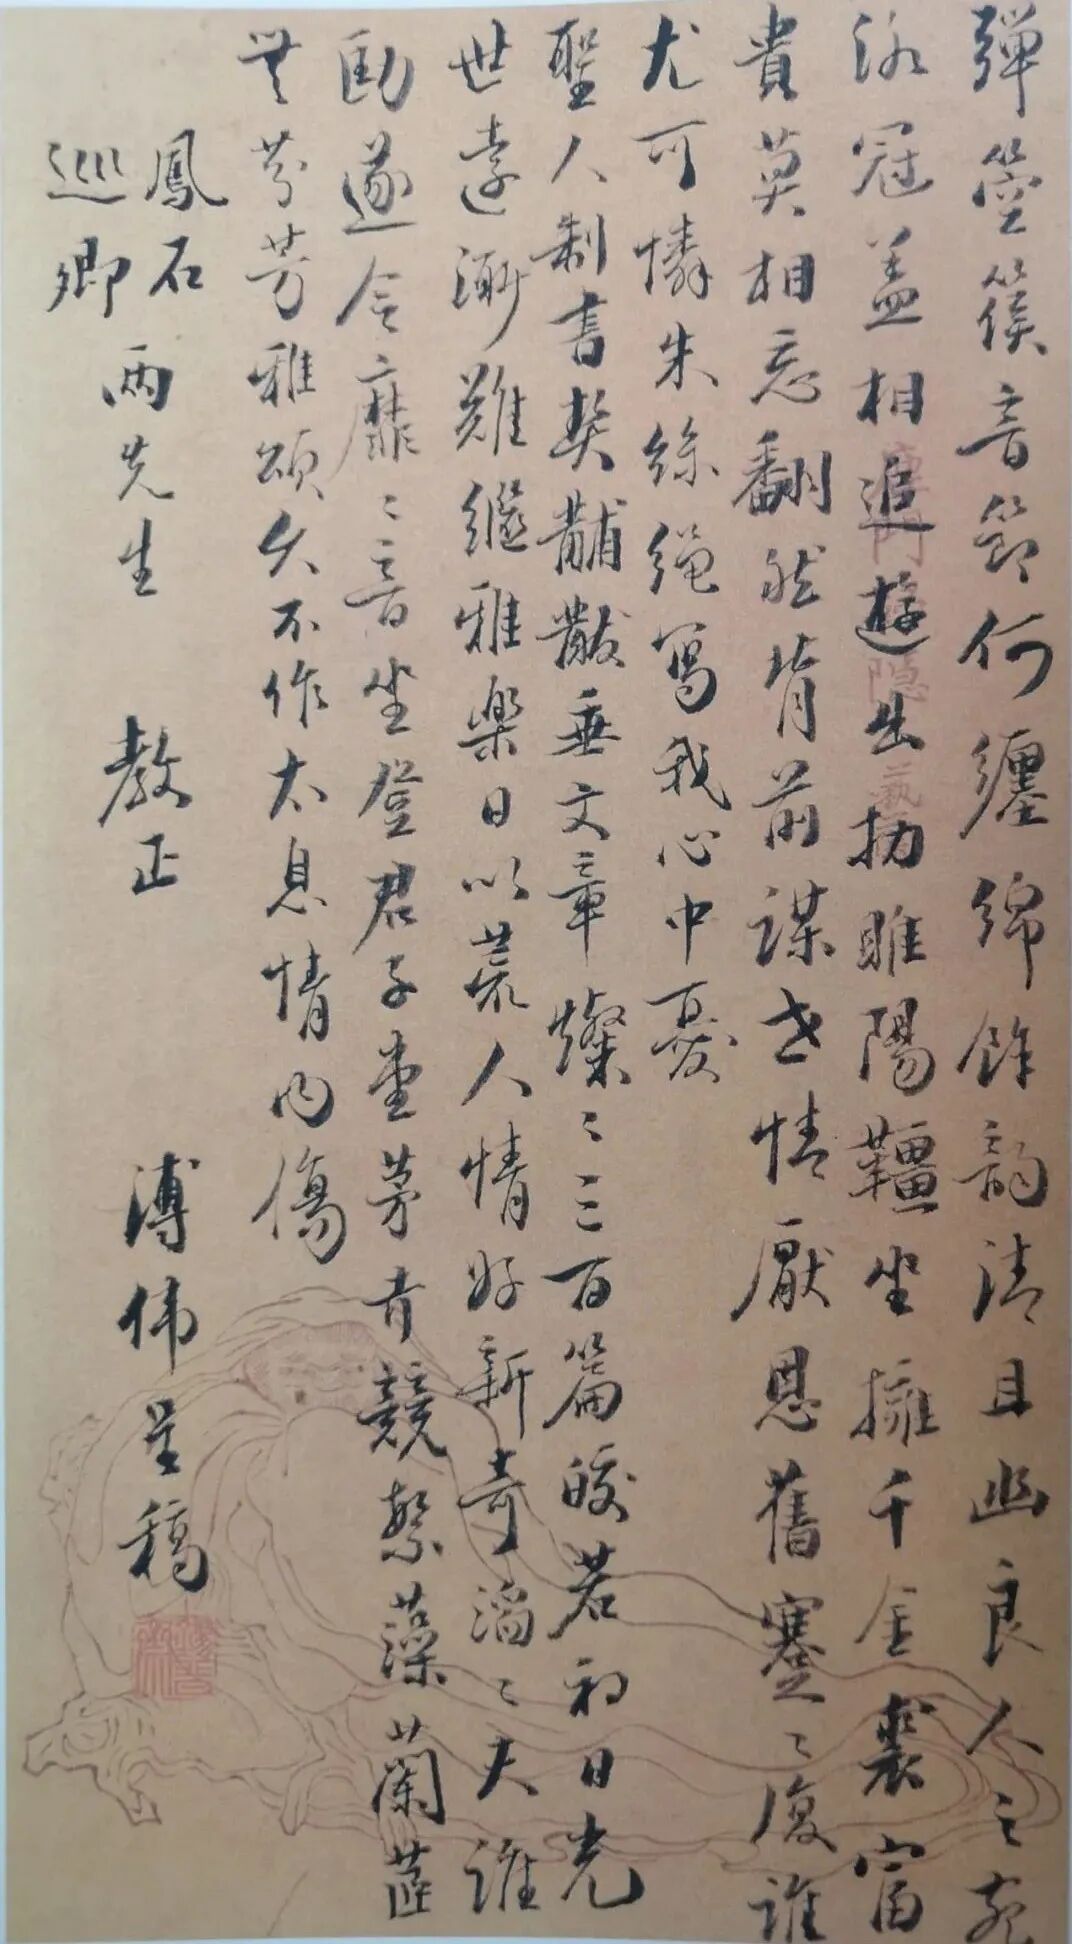 彈箜篌音節何纏綿餘韵清且幽良人之宛
洛冠蓋相追遊出扐雎陽韁坐擁千金裘富
貴莫相忘翻然背前謀世情厭恩舊蹇蹇復誰
尤可憐朱絲绳寫我心中憂
聖人制書契黼黻垂文章燦〻三百篇皎若初日光
世遠漸難繼雅樂日以荒人情好新奇滔〻夫誰
勔遂令靡〻音坐登君子堂茅青競繁藻蘭茝
無芬芳雅頌久不作太息情內傷
鳳石
巡卿兩先生 教正
溥伟呈稿